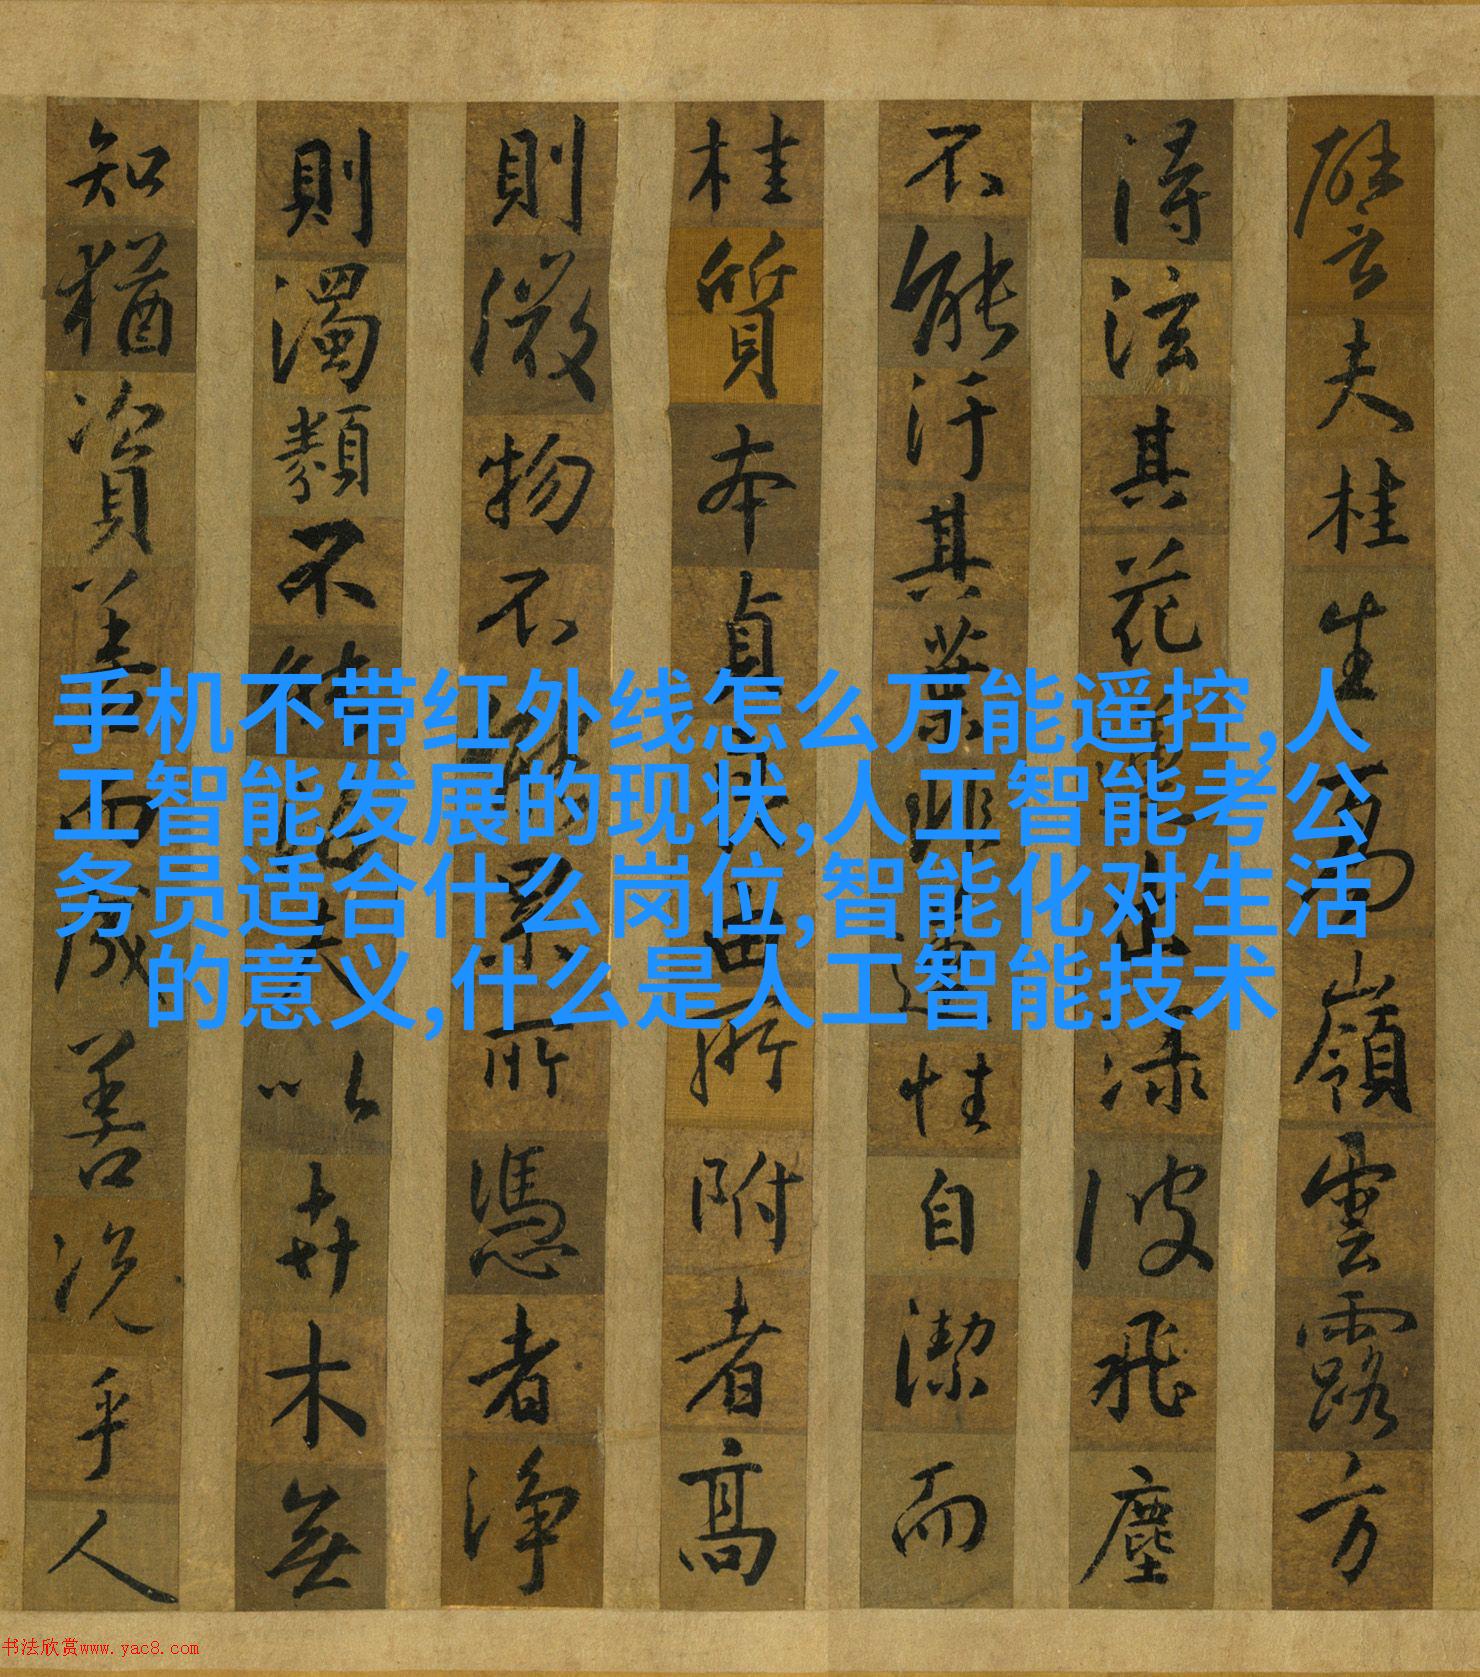 譬夫桂生高嶺雲露方
得泫其花蓮出淥波飛塵
不能汙其葉非蓮性自潔而
桂質本貞良由所附者高
則微物不能累所憑者淨
則濁類不能沾夫以卉木無
知猶資善而成善況乎人
手机不带红外线怎么万能遥控,人
工智能发展的现状,人工智能考公
务员适合什么岗位,智能化对生活
的意义,什么是人工智能技术
书法欣赏www.yac8.com